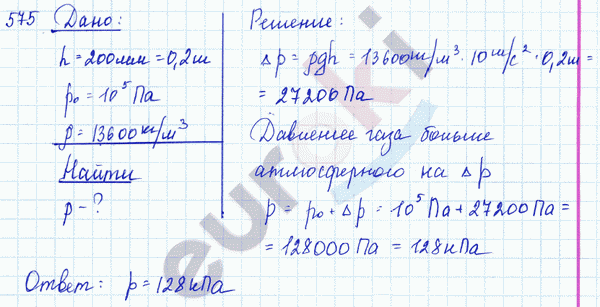 575 Дано:
h = 200мм = 0,2м
p₀ = 10⁵ Па
ρ = 13600 кг/м³
Найти
p - ?
Решение:
Δp = ρgh = 13600кг/м³ · 10 м/с² · 0,2м =
= 27200 Па
Давление газа больше
атмосферного на Δp
p = p₀ + Δp = 10⁵ Па + 27200 Па =
= 128000 Па = 128кПа
Ответ: p = 128кПа
euroki